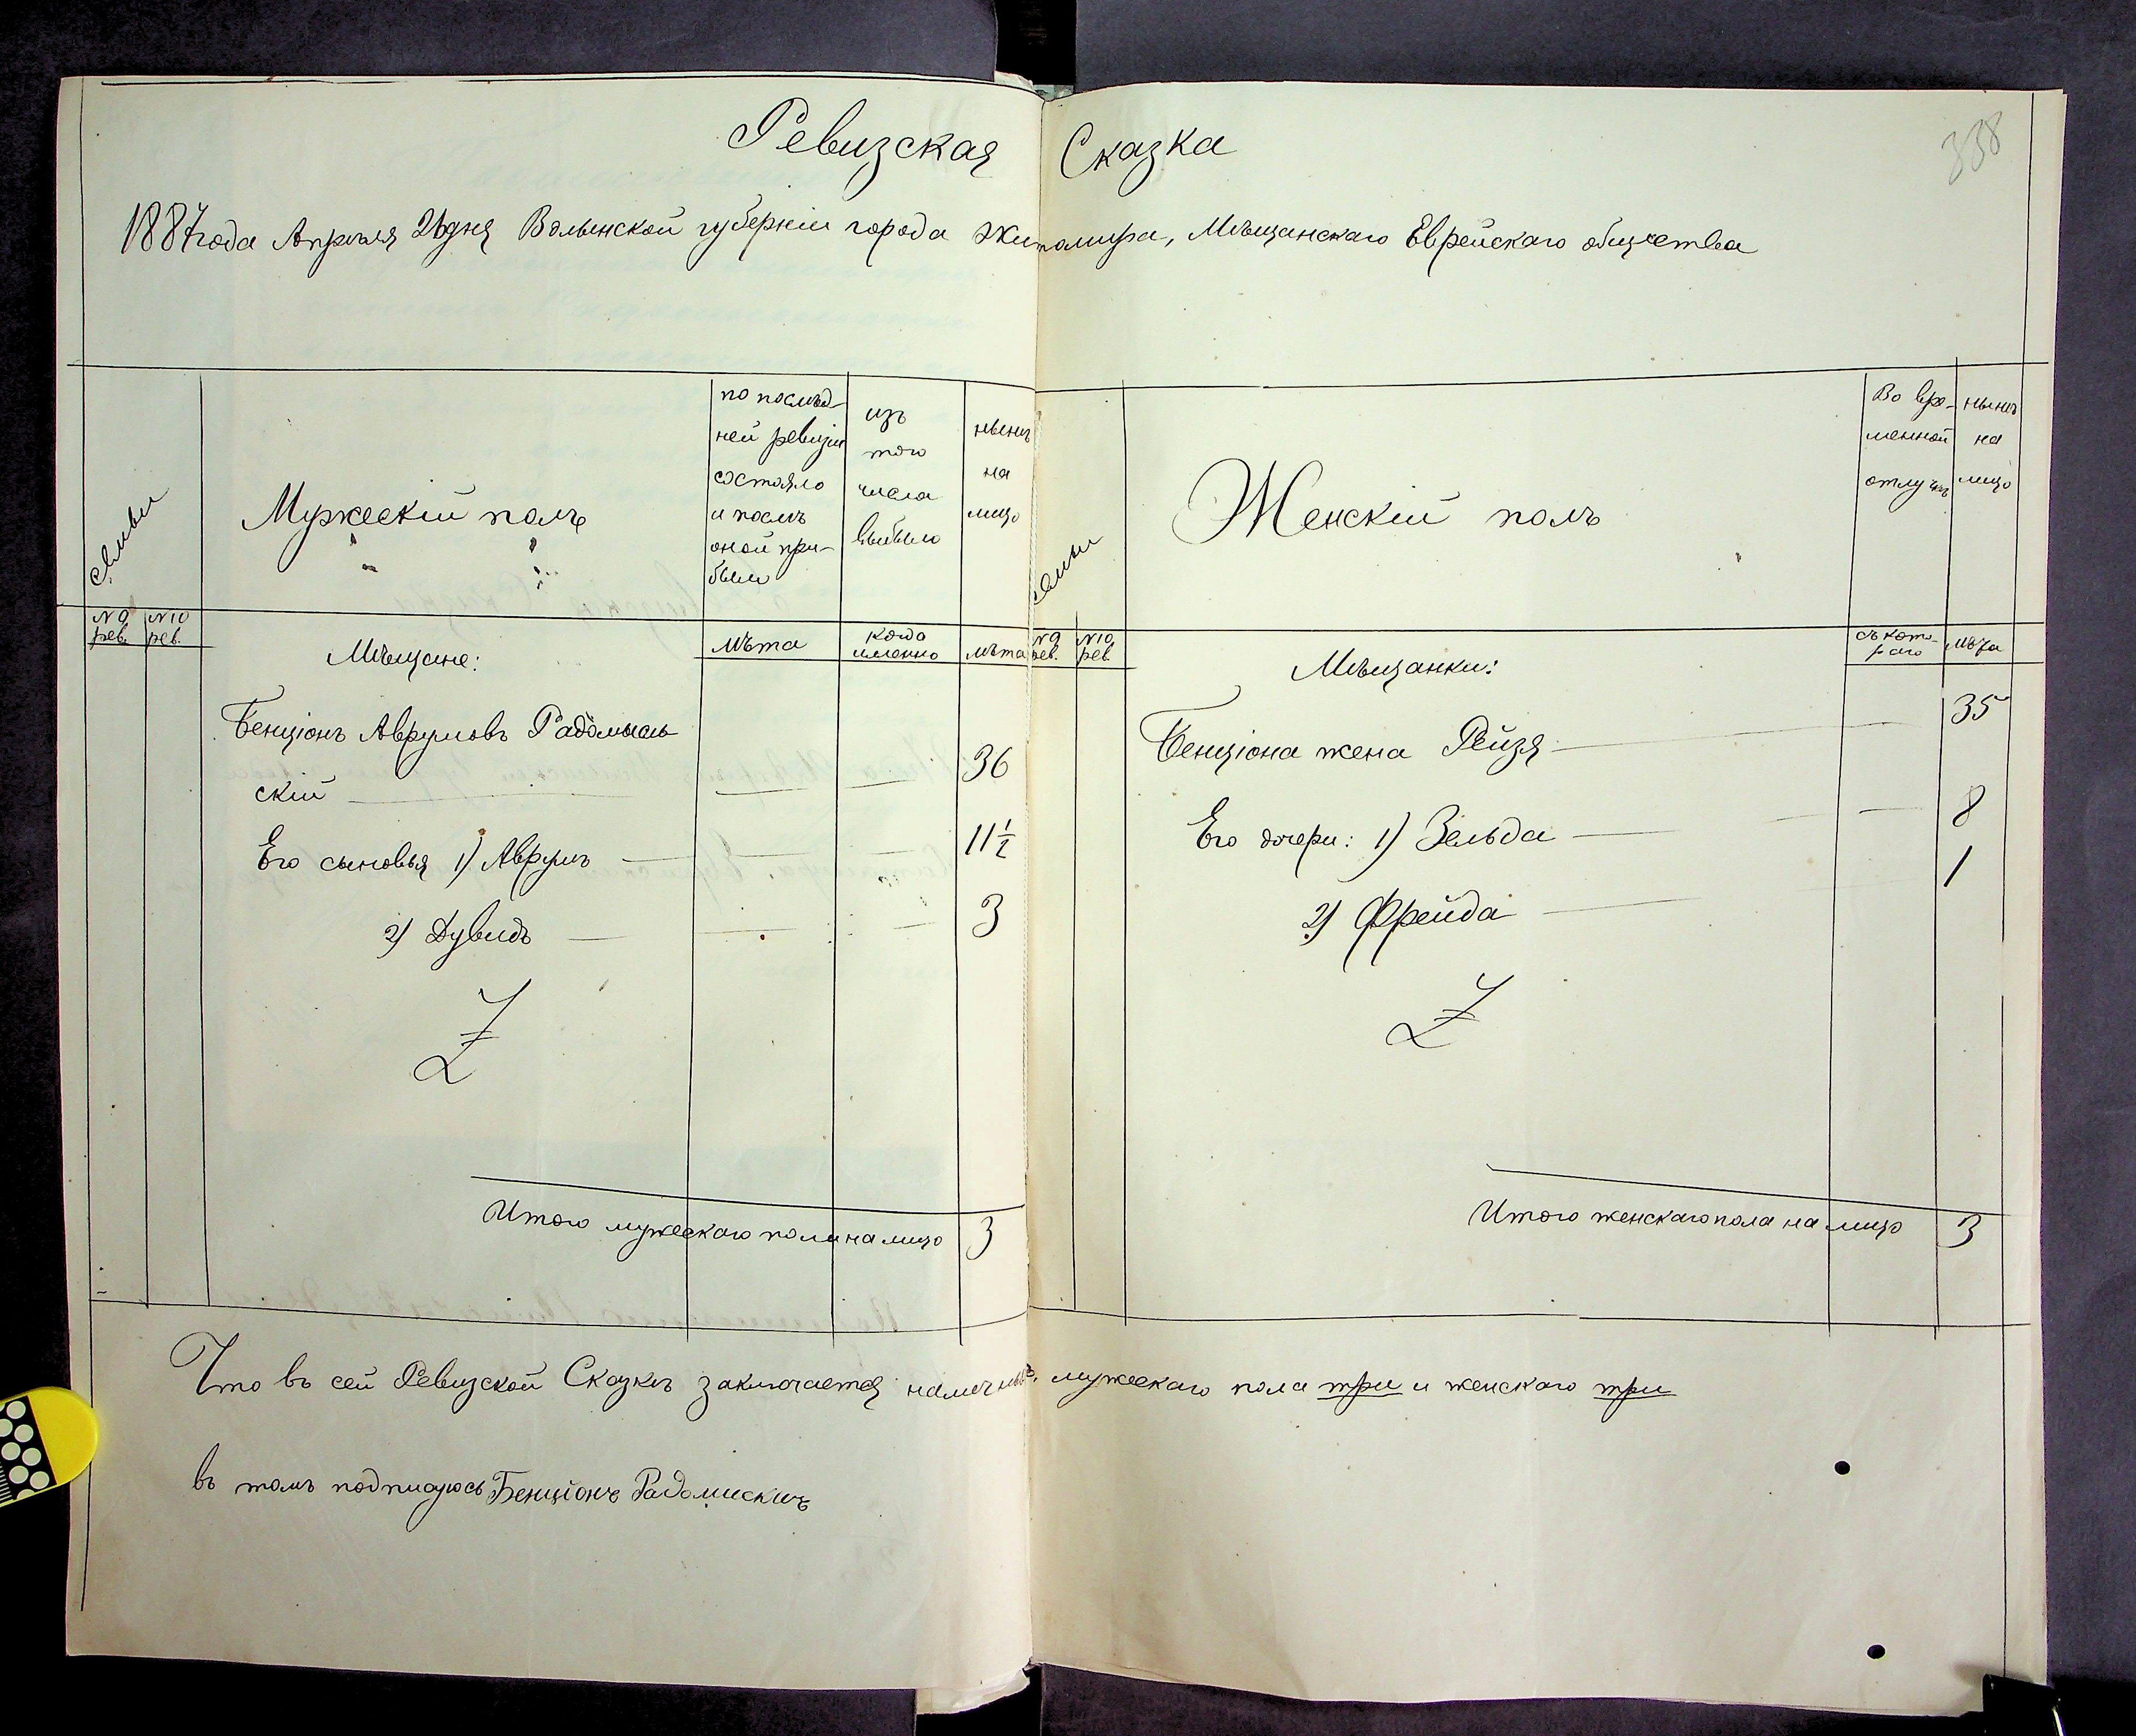 338
Ревизская Сказка
1887 года Апрѣля дня Волынской губерніи города Житомира, Мѣщанскаго Еврейскаго общества
семьи
Мужескій полъ
по послѣд-
ней ревизіи
состояло
и послѣ
оной при-
было
изъ
того
числа
выбыло
нынѣ
на
лицо
№ 9 рев.
№ 10 рев.
Мѣщане:
лѣта
когда
именно
лѣта
Бенціонъ Аврумовъ Радомысль-
скій — — — 36
Его сыновья 1) Аврумъ — — — 11 1/2
2) Дувидъ — — — 3
Z
Итого мужескаго пола на лицо 3
семьи
Женскій полъ
Во вре-
менной
отлучкѣ
нынѣ
на
лицо
№ 9 рев.
№ 10 рев.
Мѣщанки:
съ кото-
раго
лѣта
Бенціона жена Рейзя — 35
Его дочери: 1) Зельда — — 8
2) Фрейда — 1
Z
Итого женскаго пола на лицо 3
Что въ сей Ревизской Сказкѣ заключается наличныхъ мужескаго пола три и женскаго три
въ томъ подписуюсь Бенціонъ Радомискиъ